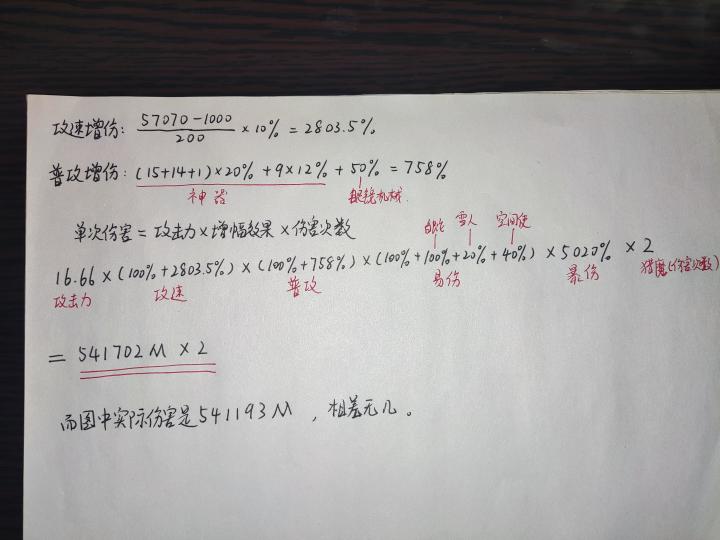 攻速增伤: (57070-1000)/200 ×10% = 2803.5%
普攻增伤: (15+14+1)×20% + 9×12% + 50% = 758%
神器 机械
单次伤害 = 攻击力×增幅效果×伤害次数
白蛇 雪人 空间使
16.66×(100%+2803.5%)×(100%+758%)×(100%+100%+20%+40%)×5020%×2
攻击力 攻速 普攻 易伤 暴伤 猎魔(伤害次数)
= 541702M×2
而图中实际伤害是541193M，相差无几。